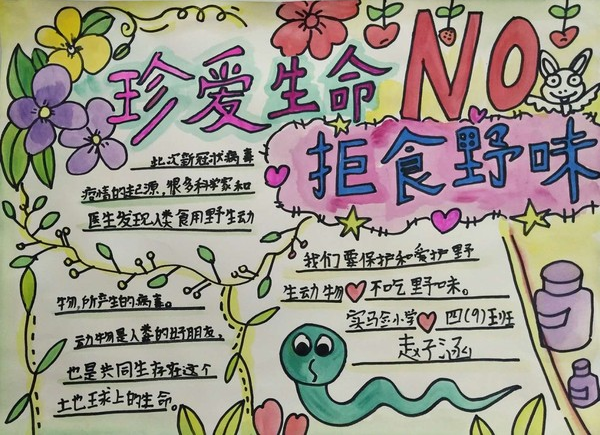 珍爱生命 NO
拒食野味
此次新冠状病毒
疫情的起源,很多科学家和
医生发现人类食用野生动
物,所产生的病毒。
动物是人类的好朋友,
也是共同生存在这个
土也球上的生命。
我们要保护和爱护野
生动物不吃野味。
实验小学 四(9)班
赵子涵